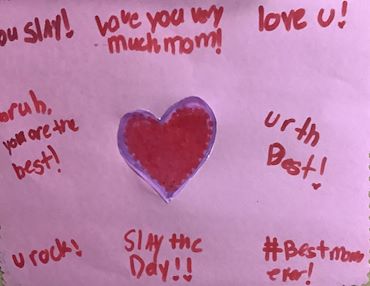 ou SLAY!
Love you very
much mom!
love u!
bruh,
you are the
best!
ur th
Best!
u rock!
Slay the
Day!!
#Best mom
ever!